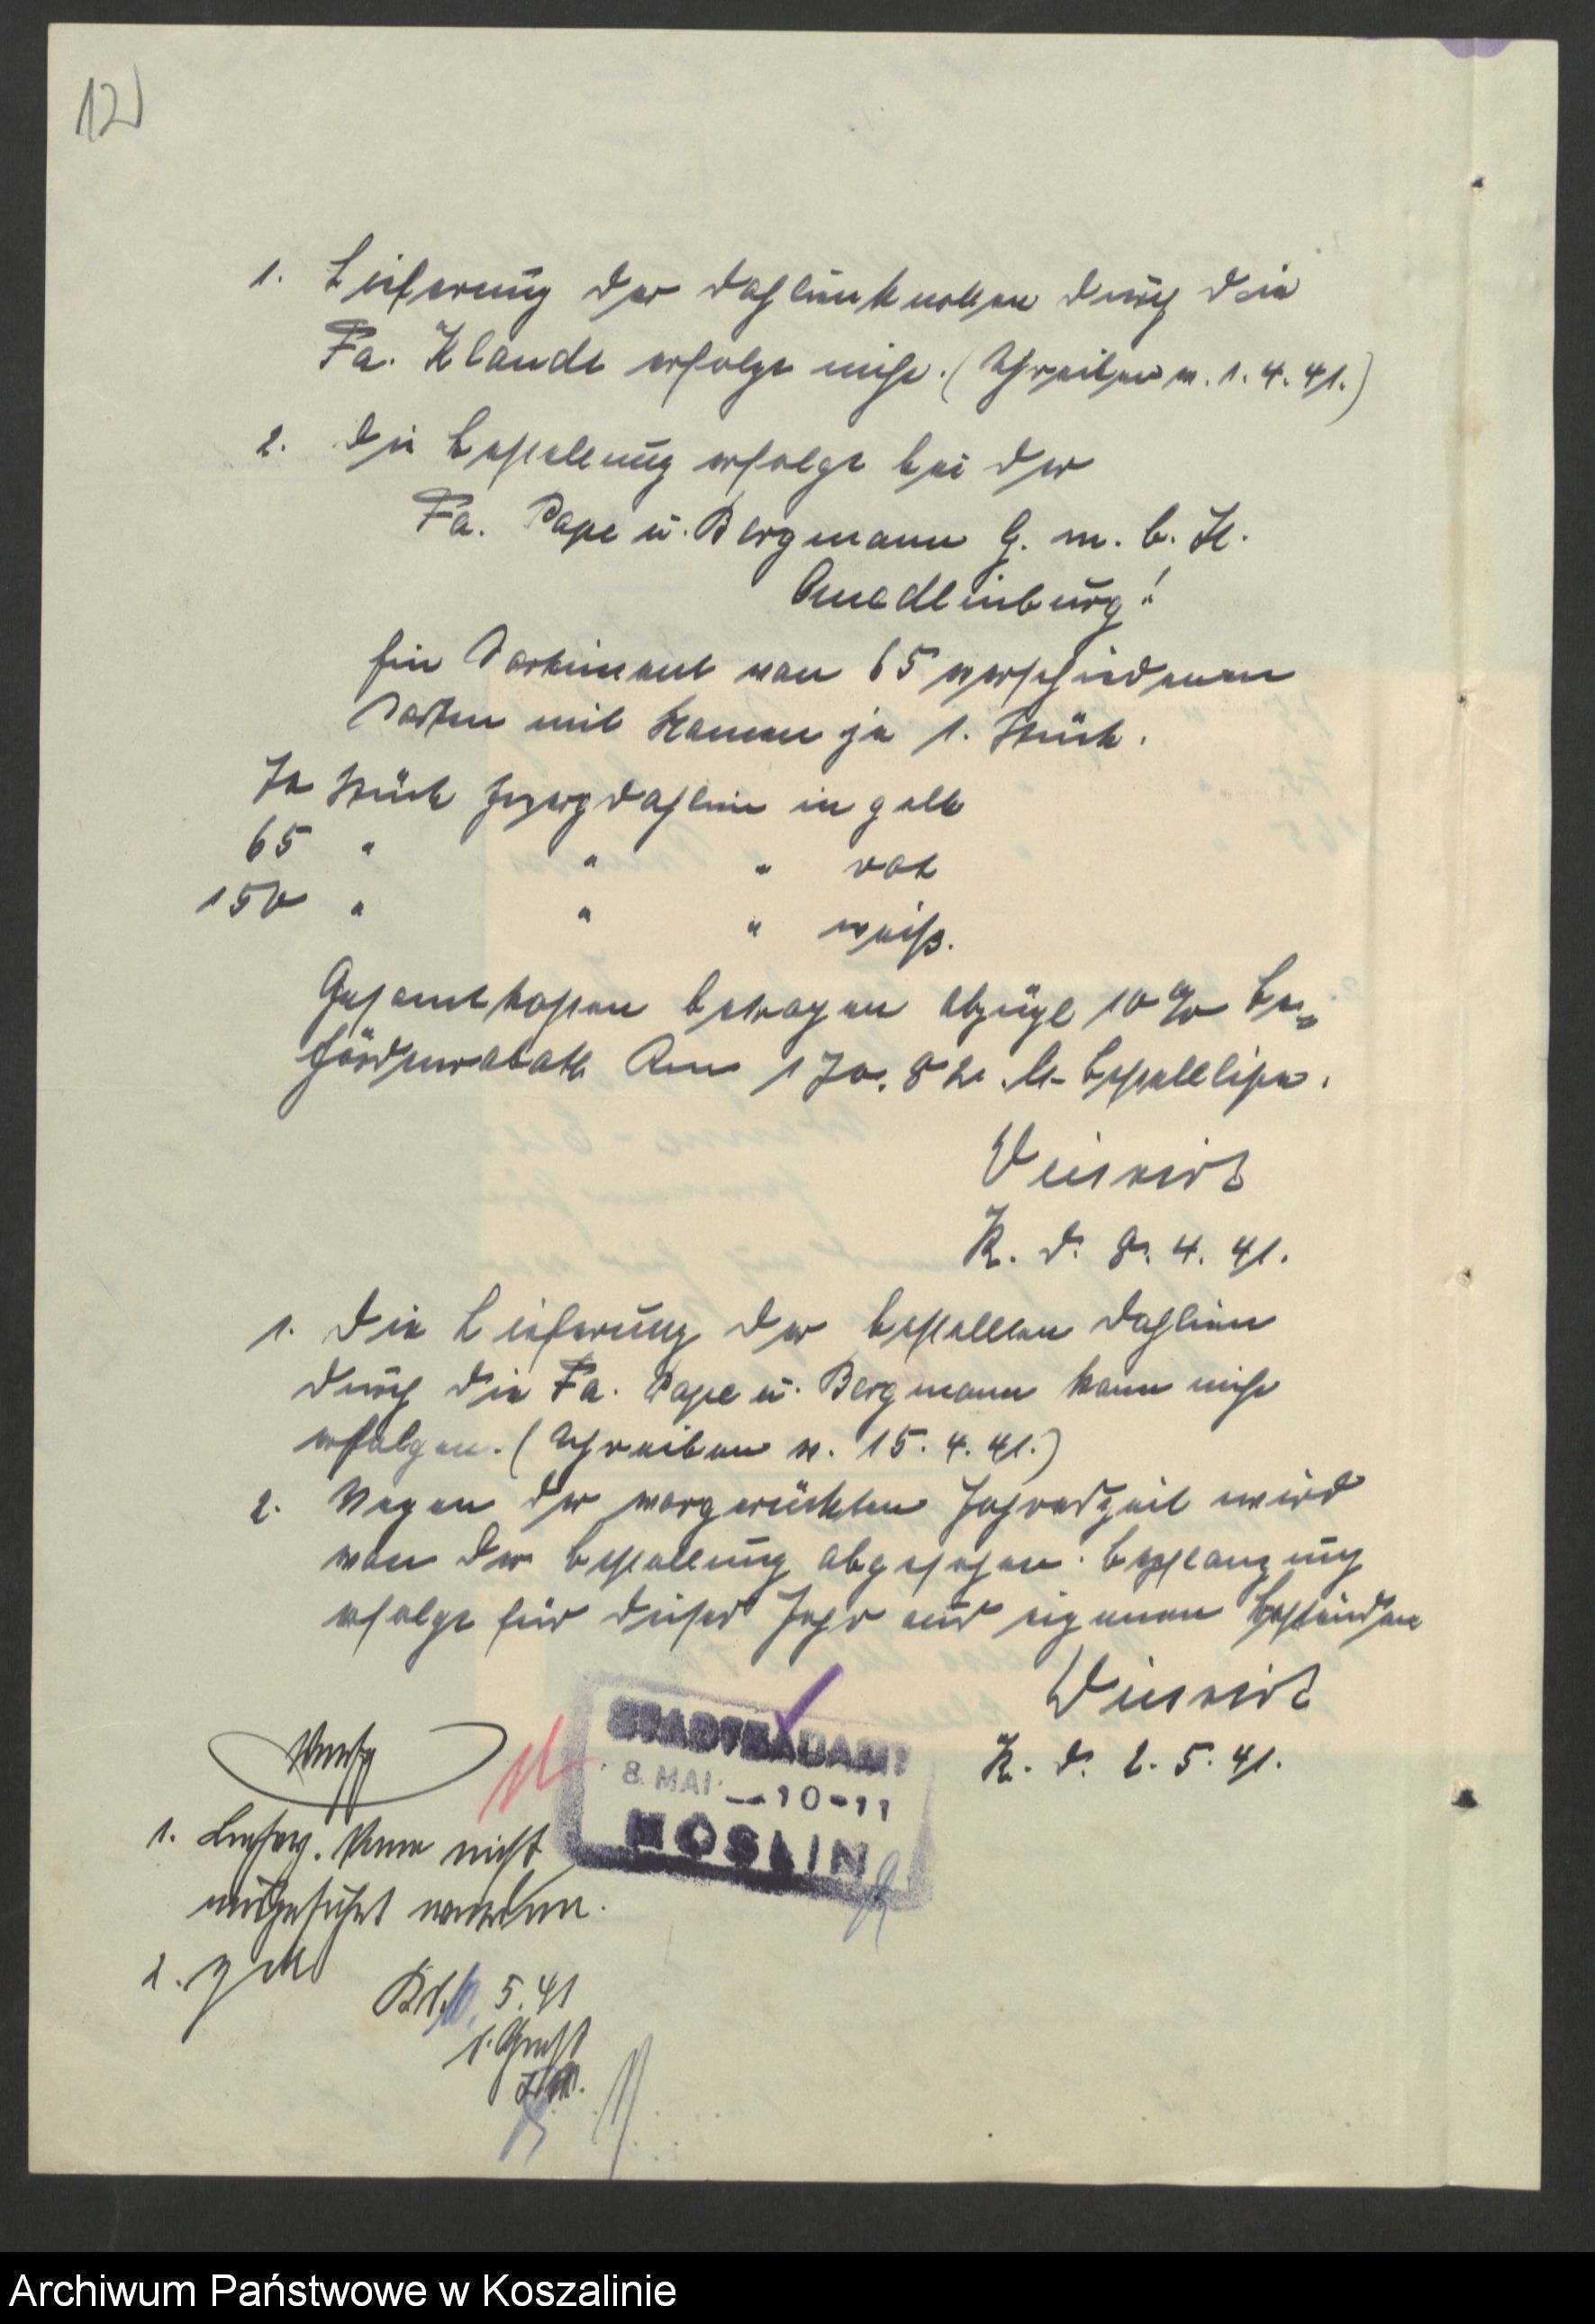 12
1. Lieferung der Dahlienknollen durch die
Fa. Klaudt erfolgt nicht. (Schreiben v. 1. 4. 41.)
2. Die Bestellung erfolgt bei der
Fa. Pape u. Bergmann G. m. b. H.
Quedlinburg!
Ein Sortiment von 65 verschiedenen
Sorten mit Namen je 1. Stück.
70 Stück Zwergdahlien in gelb
65 " " " rot
150 " " " weiß.
Gesamtkosten betragen abzügl 10% Be=
hördenrabatt Rm 170,82 lt. Bestelliste.
K. d. 8. 4. 41.
1. Die Lieferung der bestellten Dahlien
durch die Fa. Pape u. Bergmann kann nicht
erfolgen. (Schreiben v. 15. 4. 41.)
2. Wegen der vorgerückten Jahreszeit wird
von der Bestellung abgesehen. Bepflanzung
erfolgt für dieses Jahr aus eigenen Beständen
K. d. 2. 5. 41.
STADTBAUAMT
8. MAI. —10-11
KÖSLIN
1. kann nicht
ausgeführt werden.
2. z. d. A.
5. 41
Archiwum Państwowe w Koszalinie